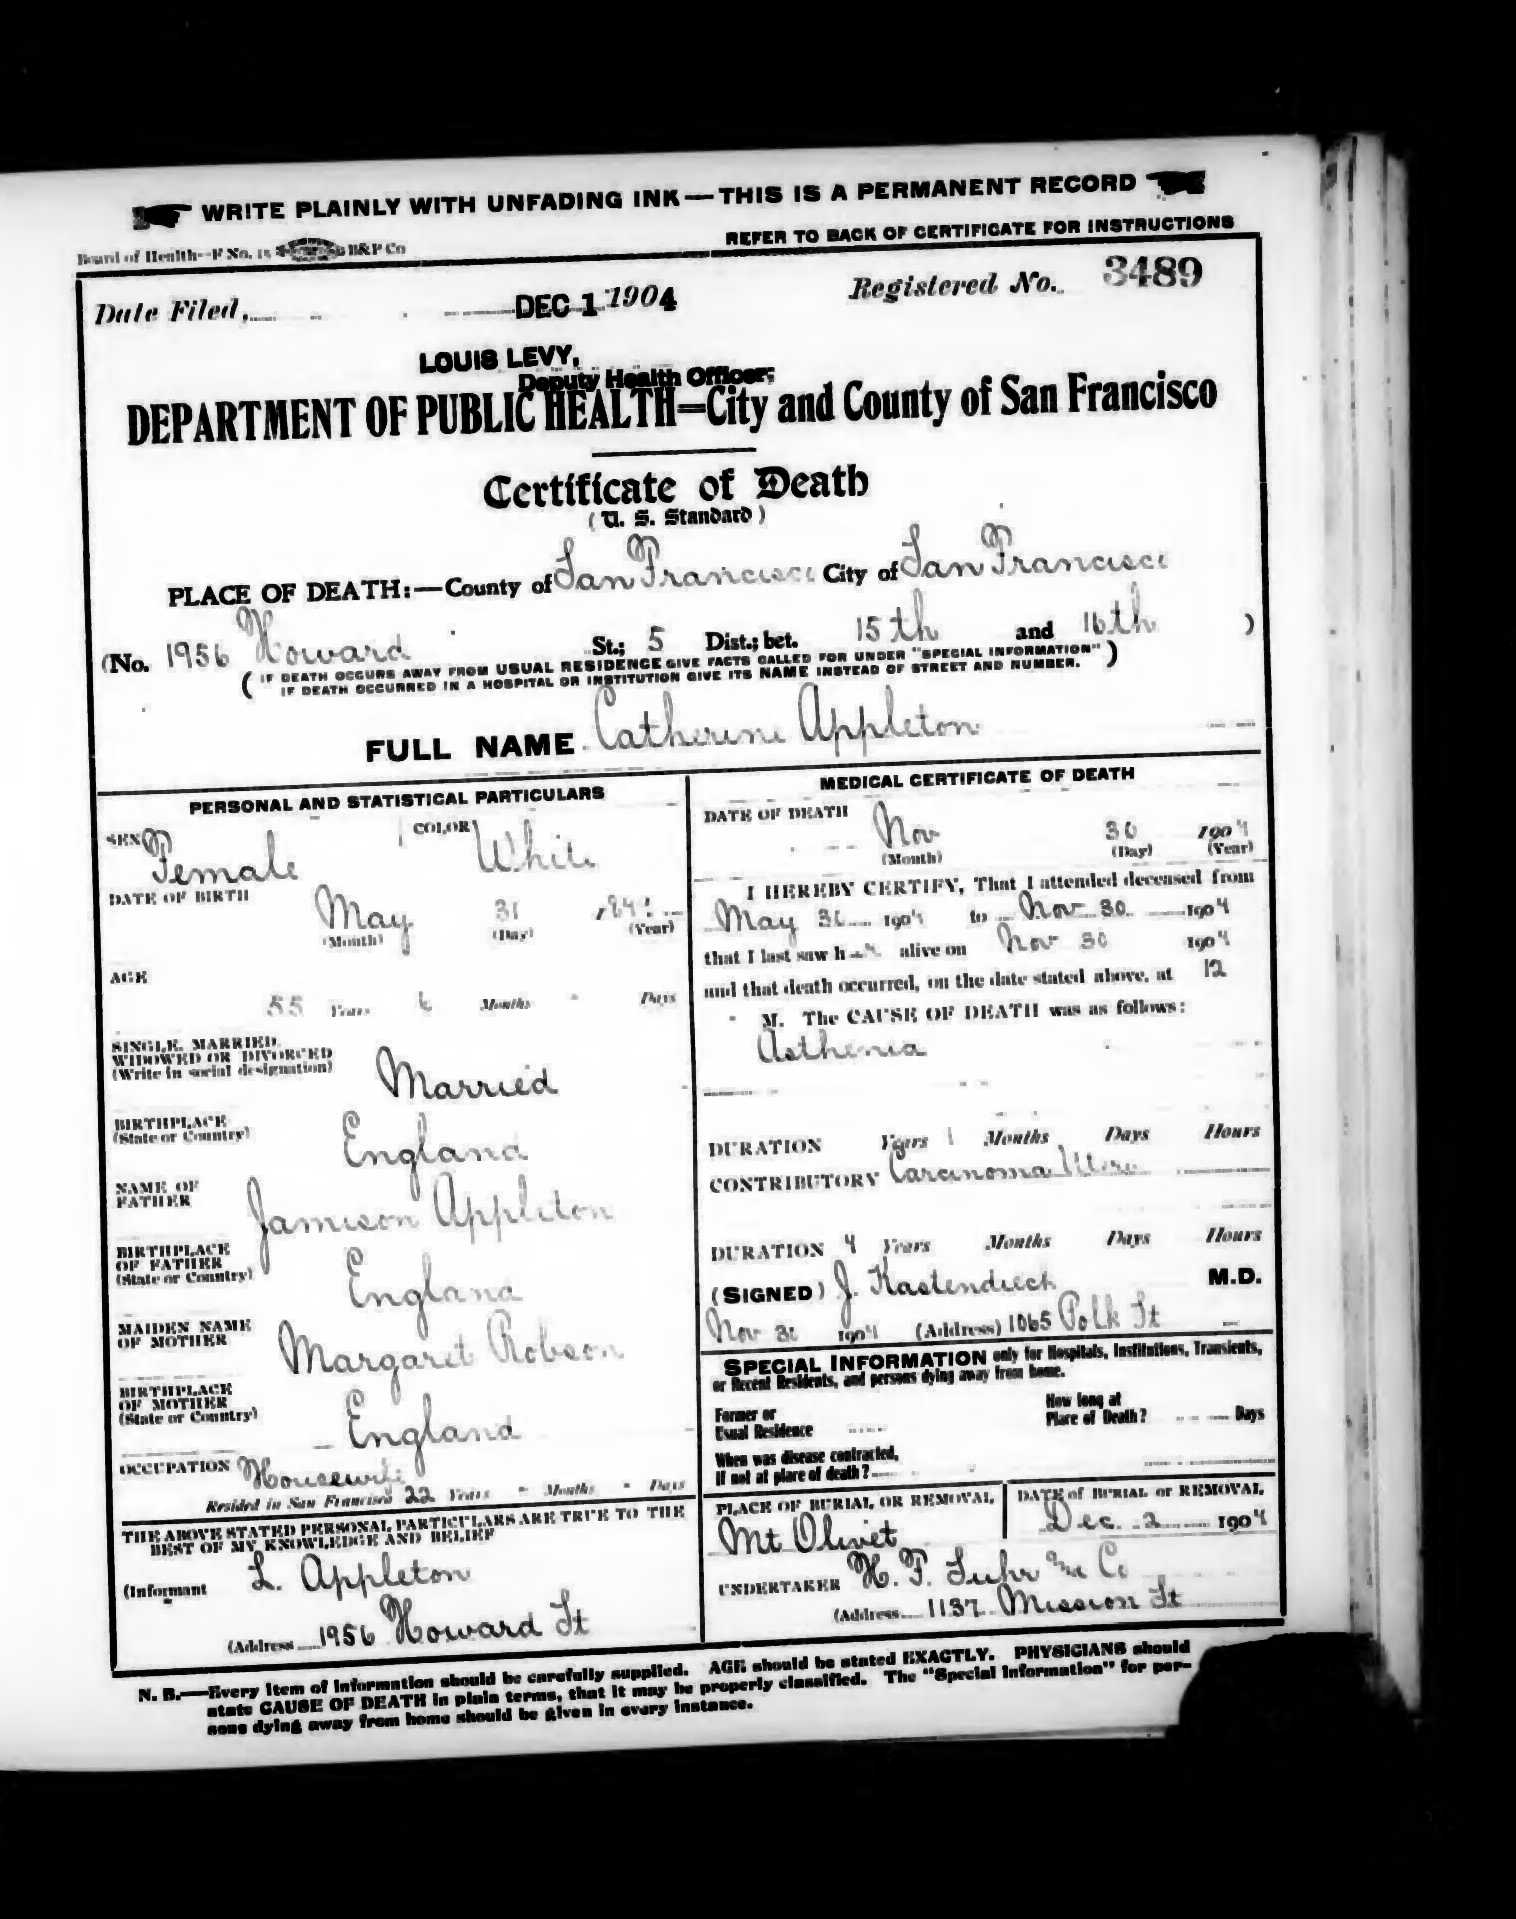 WRITE PLAINLY WITH UNFADING INK — THIS IS A PERMANENT RECORD
Board of Health--F No. 15 B&P Co
REFER TO BACK OF CERTIFICATE FOR INSTRUCTIONS
Date Filed, DEC 1 1904
Registered No. 3489
LOUIS LEVY,
Deputy Health Officer,
DEPARTMENT OF PUBLIC HEALTH=City and County of San Francisco
Certificate of Death
(U. S. Standard)
PLACE OF DEATH:—County of San Francisco City of San Francisco
(No. 1956 Howard St.; 5 Dist.; bet. 15th and 16th )
( IF DEATH OCCURS AWAY FROM USUAL RESIDENCE GIVE FACTS CALLED FOR UNDER "SPECIAL INFORMATION" )
IF DEATH OCCURRED IN A HOSPITAL OR INSTITUTION GIVE ITS NAME INSTEAD OF STREET AND NUMBER.
FULL NAME Catherine Appleton
PERSONAL AND STATISTICAL PARTICULARS
SEX Female COLOR White
DATE OF BIRTH
May 31
(Month) (Day) (Year)
AGE
55 Years 6 Months - Days
SINGLE, MARRIED,
WIDOWED OR DIVORCED
(Write in social designation)
Married
BIRTHPLACE
(State or Country)
England
NAME OF
FATHER
Jamieson Appleton
BIRTHPLACE
OF FATHER
(State or Country)
England
MAIDEN NAME
OF MOTHER
Margaret Robson
BIRTHPLACE
OF MOTHER
(State or Country)
England
OCCUPATION Housewife
Resided in San Francisco 22 Years - Months - Days
THE ABOVE STATED PERSONAL PARTICULARS ARE TRUE TO THE
BEST OF MY KNOWLEDGE AND BELIEF
(Informant L. Appleton
(Address 1956 Howard St
MEDICAL CERTIFICATE OF DEATH
DATE OF DEATH
Nov 30 1904
(Month) (Day) (Year)
I HEREBY CERTIFY, That I attended deceased from
May 30 1904 to Nov 30 1904
that I last saw h er alive on Nov 30 1904
and that death occurred, on the date stated above, at 12
M. The CAUSE OF DEATH was as follows:
Asthenia
DURATION Years 1 Months Days Hours
CONTRIBUTORY Carcinoma Uteri
DURATION 4 Years Months Days Hours
(SIGNED) J. Kastendieck M.D.
Nov 30 1904 (Address) 1065 Polk St
SPECIAL INFORMATION only for Hospitals, Institutions, Transients,
or Recent Residents, and persons dying away from home.
Former or
Usual Residence
How long at
Place of Death? Days
When was disease contracted,
If not at place of death?
PLACE OF BURIAL OR REMOVAL
Mt Olivet
DATE of BURIAL or REMOVAL
Dec 2 1904
UNDERTAKER H. F. Suhr & Co
(Address 1137 Mission St
N. B.—Every item of information should be carefully supplied. AGE should be stated EXACTLY. PHYSICIANS should
state CAUSE OF DEATH in plain terms, that it may be properly classified. The "Special Information" for per-
sons dying away from home should be given in every instance.